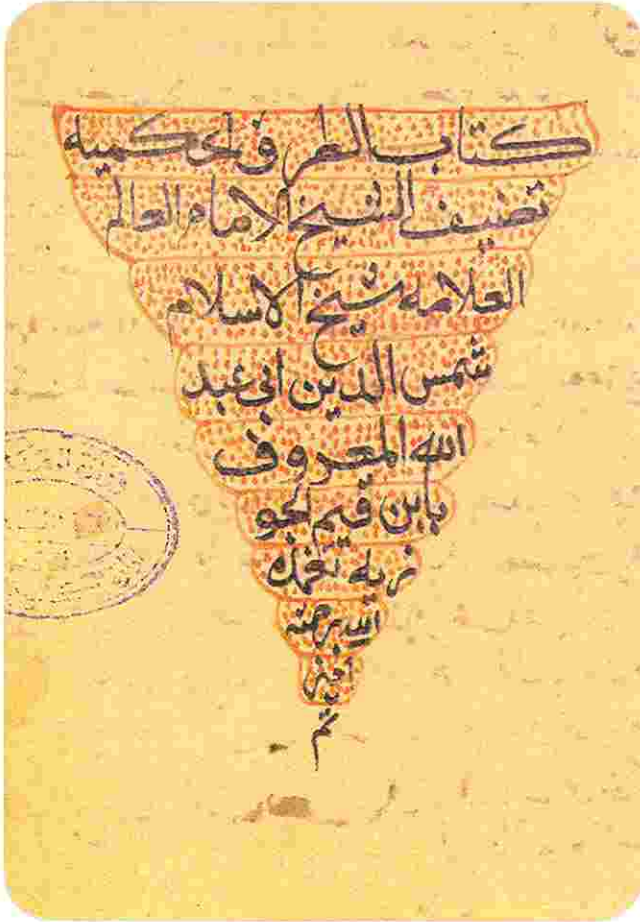 كتاب الطرق الحكميه
تصنيف الشيخ الامام العالم
العلامه شيخ الاسلام
شمس الدين ابي عبد
الله المعروف
بابن قيم الجو
زيه تغمده
الله برحمته
امين
تم